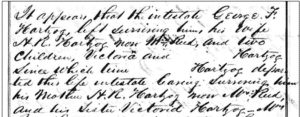 It appears that the intestate George F.
Hartzog left surviving him his wife
A.R. Hartzog now Mrs. Reid, and two
Children, Victoria and Hartzog
Since which time Hartzog depar
ted this life intestate leaving surviving him
his Mother A.R. Hartzog now Mrs. Reid
and his Sister Victoria Hartzog - Mrs.